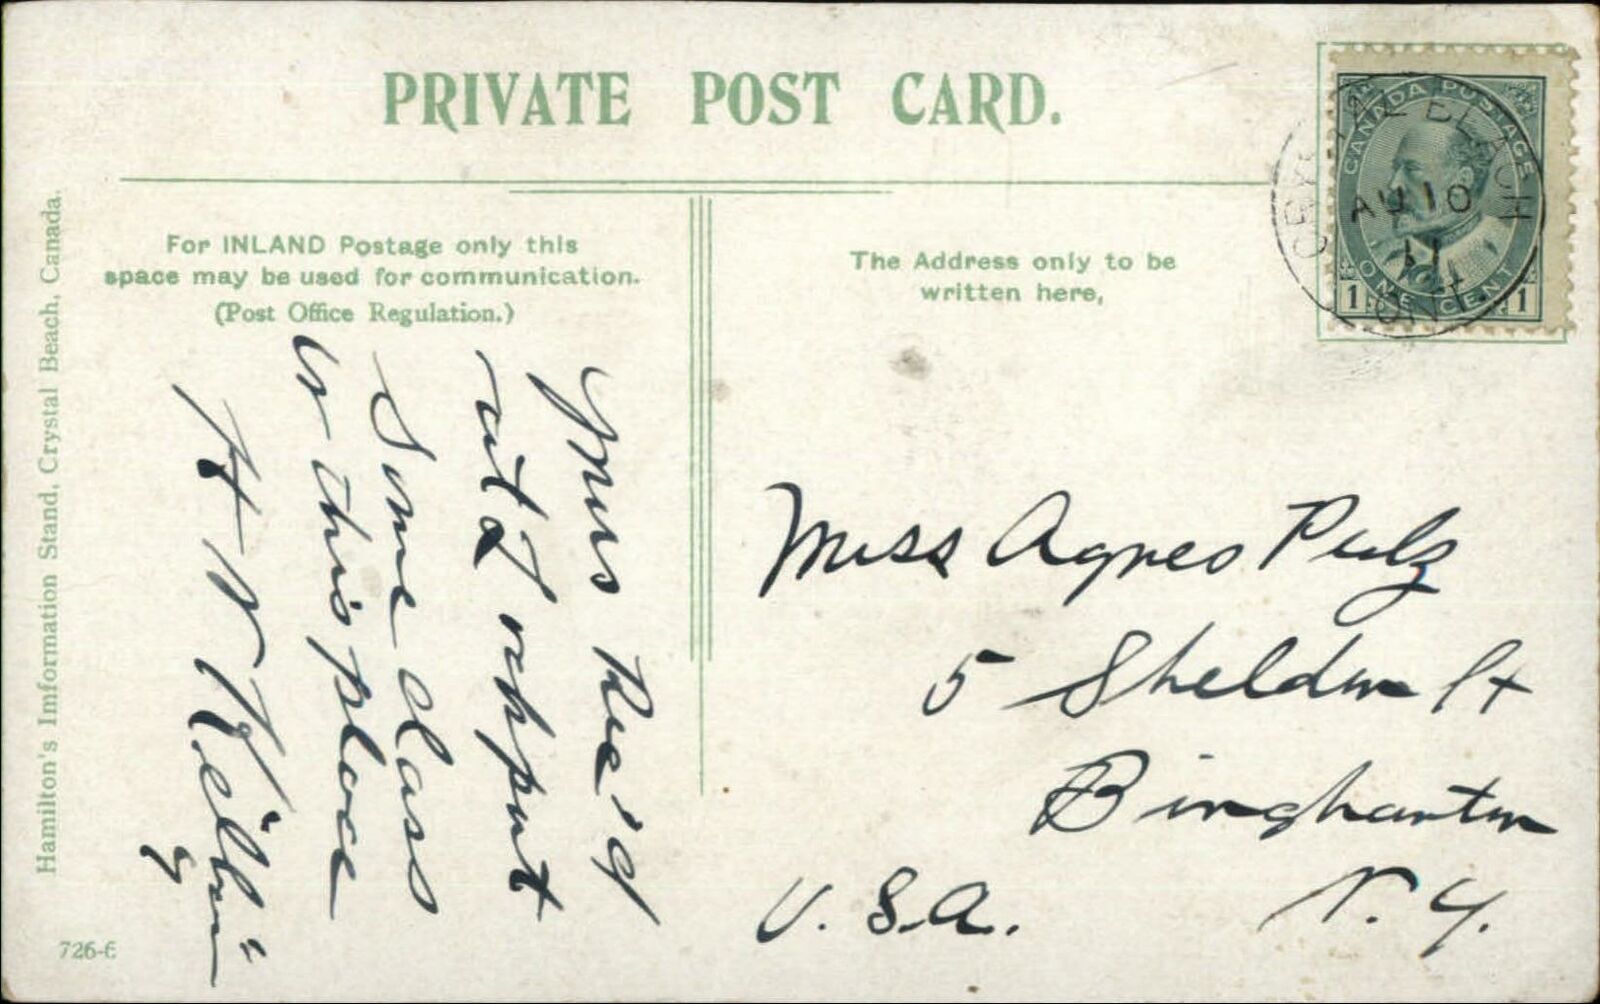 PRIVATE POST CARD.
For INLAND Postage only this
space may be used for communication.
(Post Office Regulation.)
The Address only to be
written here,
CANADA POSTAGE
ONE CENT
1 1
CRYSTAL BEACH
AU 10
11
ONT.
Yours Rec'd
will report
Some class
to this place
H W
Miss Agnes Pulz
5 Sheldon St
Binghamton
N. Y.
U. S. A.
Hamilton's Imformation Stand, Crystal Beach, Canada.
726-6